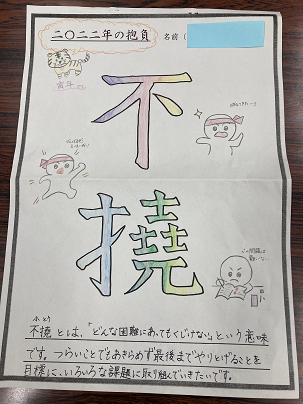 二〇二二年の抱負
名前（
寅年
不
撓
ふとう
不撓とは、「どんな困難にあってもくじけない」という意味
です。つらいことでもあきらめず最後までやりとげることを
目標に、いろいろな課題に取り組んでいきたいです。